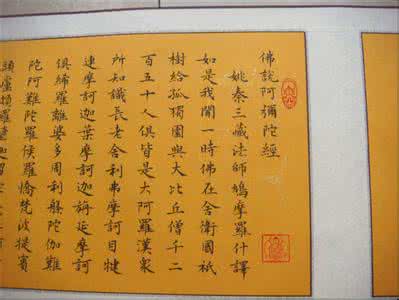 佛說阿彌陀經
姚秦三藏法師鳩摩羅什譯
如是我聞一時佛在舍衛國祇
樹給孤獨園與大比丘僧千二
百五十人俱皆是大阿羅漢眾
所知識長老舍利弗摩訶目犍
連摩訶迦葉摩訶迦旃延摩訶
俱絺羅離婆多周利槃陀伽難
陀阿難陀羅侯羅憍梵波提賓
頭盧頗羅墮迦留